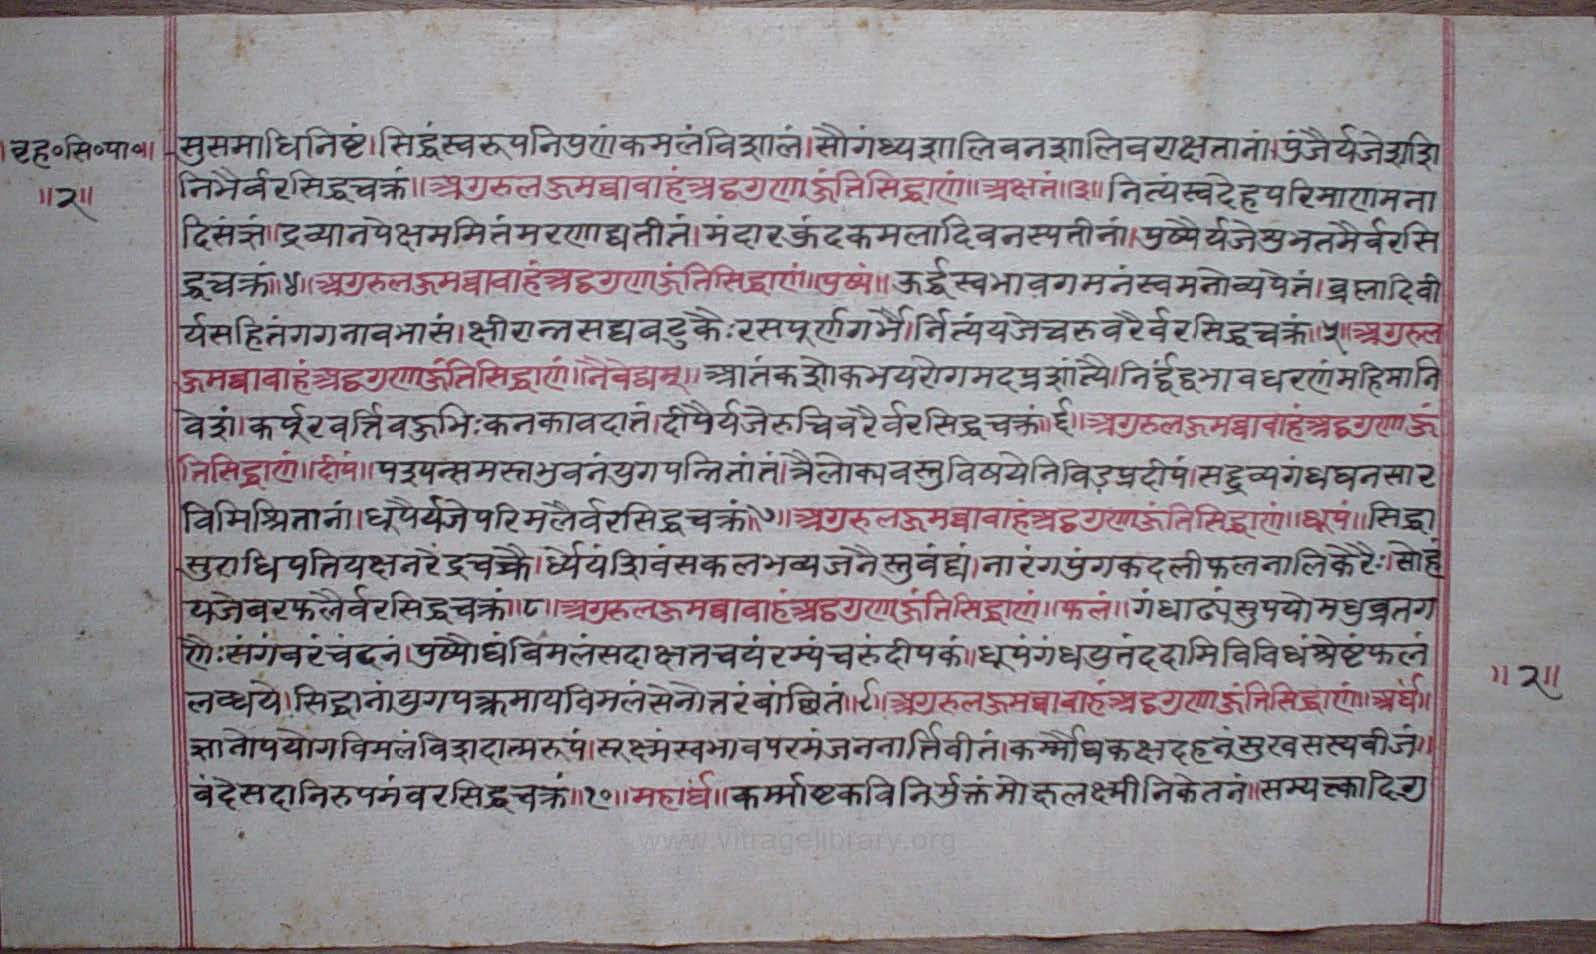 ।वृह॰सि॰पा॰।
॥२॥
सुसमाधिनिष्टं।सिद्धंस्वरूपनिपुणंकमलंविशालं।सौगंध्यशालिवनशालिवराक्षतानां।पुंजैर्यजेशशि
निभैर्वरसिद्धचक्रं॥अगुरुलऊमव्वावाहंअट्ठगुणाऊंतिसिद्धाणं॥अक्षतं॥३॥नित्यंस्वदेहपरिमाणमना
दिसंज्ञं॥द्रव्यानपेक्षममितंमरणाद्यतीतं।मंदारकुंदकमलादिवनस्पतीनां।पुष्पैर्यजेसुभतमैर्वरसि
द्धचक्रं॥४॥अगुरुलऊमव्वावाहंअट्ठगुणाऊंतिसिद्धाणं॥पुष्पं॥ऊर्द्धस्वभावगमनंस्वमनोव्यपेतं।ब्रह्मादिवी
र्यसहितंगगनावभासं।क्षीरान्नसद्यवटुकैःरसपूर्णगर्भै।र्नित्यंयजेचरुवरैर्वरसिद्धचक्रं॥५॥अगुरुल
ऊमव्वावाहंअट्ठगुणाऊंतिसिद्धाणं।नैवेद्यम्॥आतंकशोकभयरोगमदप्रशांत्यै।निर्द्वंद्वभावधरणंमहिमानि
वेशं।कर्पूरवर्त्तिवऊभिःकनकावदातं।दीपैर्यजेरुचिवरैर्वरसिद्धचक्रं॥६॥अगुरुलऊमव्वावाहंअट्ठगुणाऊं
तिसिद्धाणं॥दीपं॥पश्यन्समस्तभुवनंयुगपन्नितांतं।त्रैलोक्यवस्तुविषयेनिविडप्रदीपं।सद्द्रव्यगंधघनसार
विमिश्रितानां।धूपैर्यजेपरिमलैर्वरसिद्धचक्रं॥७॥अगुरुलऊमव्वावाहंअट्ठगुणाऊंतिसिद्धाणं॥धूपं॥सिद्धा
सुराधिपतियक्षनरेंद्रचक्रै।र्ध्येयंशिवंसकलभव्यजनैस्तुवंद्यं।नारंगपुंगकदलीफलनालिकेरैः।सोहं
यजेवरफलैर्वरसिद्धचक्रं॥८॥अगुरुलऊमव्वावाहंअट्ठगुणाऊंतिसिद्धाणं॥फलं॥गंधाढ्यंसुपयोमधुव्रतग
णैःसंगंवरंचंदनं।पुष्पौघंविमलंसदाक्षतचयंरम्यंचरुंदीपकं॥धूपंगंधयुतंददामिविविधंश्रेष्टंफलं
लब्धये।सिद्धानांयुगपत्क्रमायविमलंसेनोत्तरंवांछितं॥९॥अगुरुलऊमव्वावाहंअट्ठगुणाऊंतिसिद्धाणं॥अर्घं॥
॥२॥
ज्ञानोपयोगविमलंविशदात्मरूपं।सूक्ष्मंस्वभावपरमंजननार्त्तिवीतं।कर्म्मौघकक्षदहनंसुखसस्यबीजं॥
वंदेसदानिरुपमंवरसिद्धचक्रं॥१०॥महार्घं॥कर्म्माष्टकविनिर्मुक्तंमोक्षलक्ष्मीनिकेतनं॥सम्यक्त्कादिगु
www.vitragelibrary.org